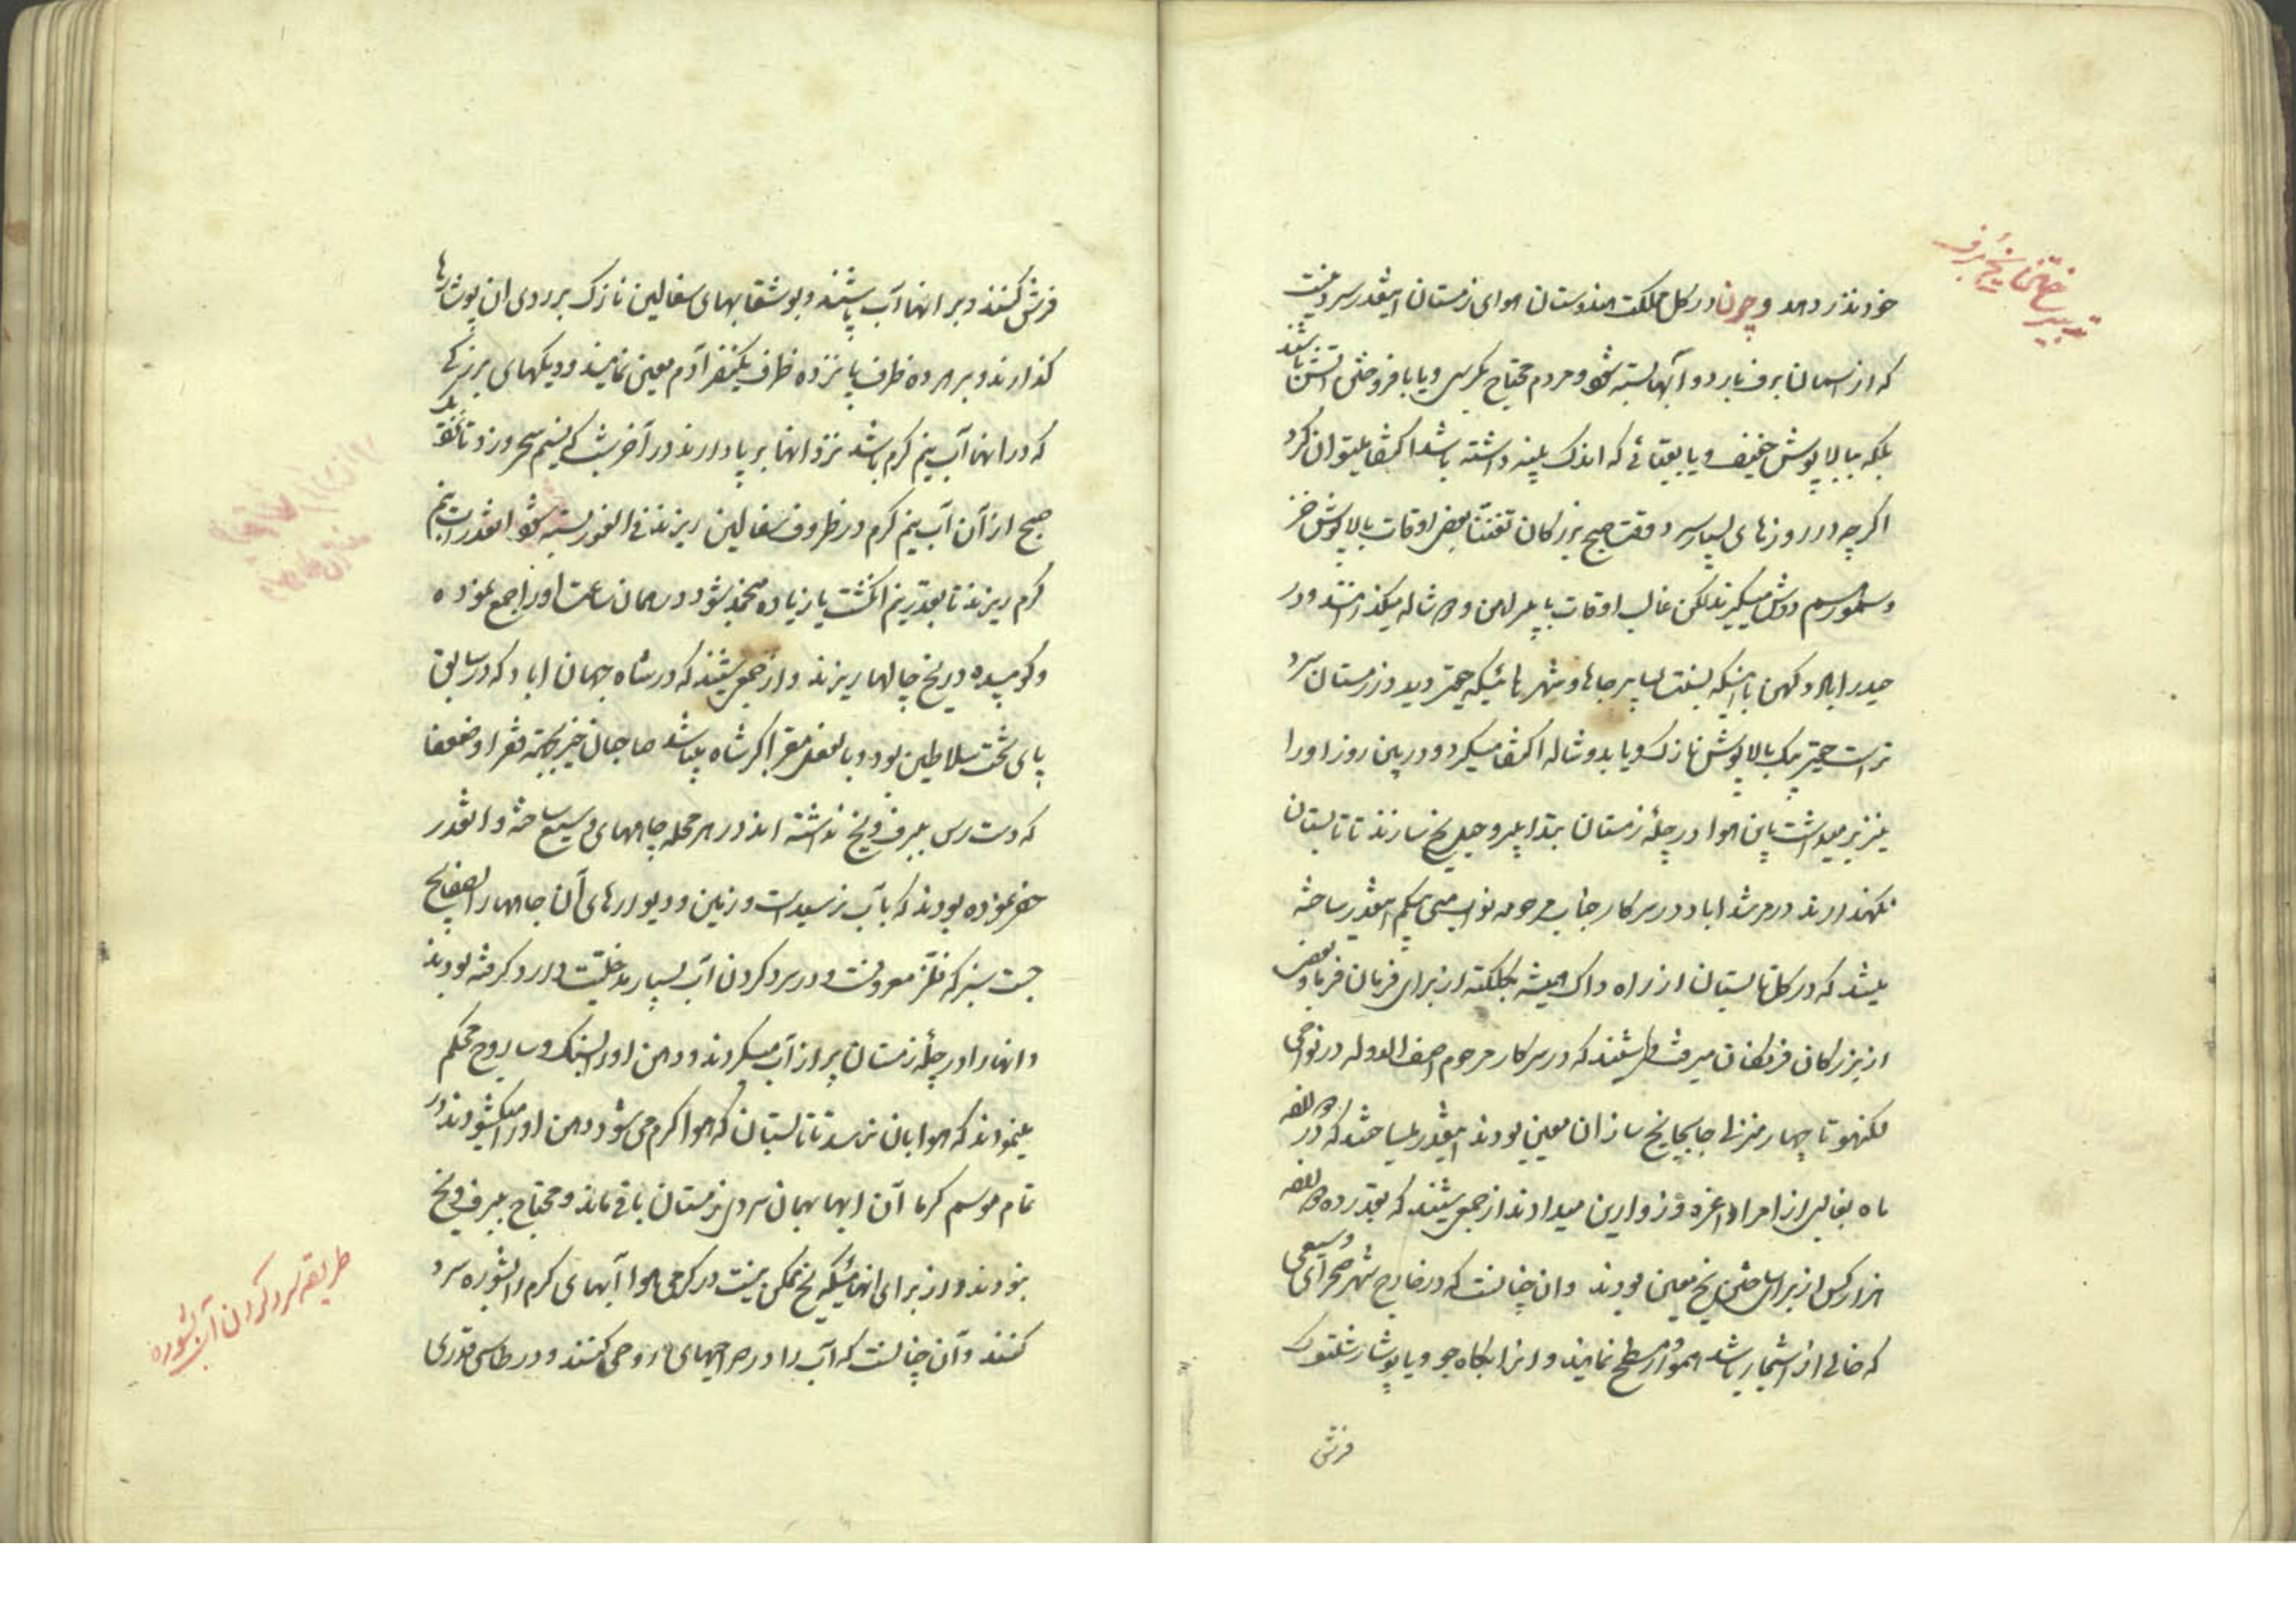 تدبیر ساختن یخ و برف
خود نذر دهد و چون در کل مملکت هندوستان هوای زمستان اینقدر سرد نیست
که از اسمان برف بارد و آبها بسته شود و مردم محتاج بکرسی و یا بافروختن اتش باشند
بلکه ببالاپوش خفیف و یا بقبائی که اندک پنبه داشته باشد اکتفا میتوان کرد
اکرچه در روزهای بسیار سرد وقت صبح بزرکان تفننا بعض اوقات بالاپوش خز
و سمور هم دوش میکیرند لکن غالب اوقات با پیراهن و دوشاله میکذرانند و در
حیدراباد دکهن با اینکه بنسبت بسایر جاها و شهرهائیکه حقیر دید در زمستان سرد
تر است حقیر بیک بالاپوش نازک و یا بدوشاله اکتفا میکرد و در بین روز او را
نیز برمیداشت باین هوا در چلهٔ زمستان بتدابیر و حیل یخ سازند تا تابستان
نکهدارند در مرشداباد در سرکار جناب مرحومه نواب منی بیکم اینقدر ساخته
میشد که در کل تابستان از راه داک همیشه بکلکته از برای فرمان فرما و بعض
از بزرکان فرنکان میرفت و میشنیدند که در سرکار مرحوم اصف الدوله در نواحی
لکنهو تا چهار منزل جابجا یخ سازان معین بودند اینقدر میساختند که در دو الله
ماه بغالب از امرا و اعزه و زوارین میدادند از جمعی شنیدند که بقدر ده دوازده
هزار کس از برای ساختن یخ معین بودند و ان چنانست که در خارج شهر صحرای وسیعی
که خالی از اشجار باشد هموار و مسطح نمایند و انرا بکاه جو و یا پوشار شلتوک
فرش
فرش کنند و بر انها آب پاشند و بوشقابهای سفالین نازک بر روی ان پوشارها
کذارند و بر هر ده ظرف پانزده ظرف یکنفر آدم معین نمایند و دیکهای بزرک
که در انها آب نیم کرم باشد نزد انها بر پا دارند در آخر شب که نسیم سحر وزد تا نفخه
صبح از آن آب نیم کرم در ظروف سفالین ریزند فی الفور بسته شود انقدر آب نیم
کرم ریزند تا بقدر نیم انکشت یا زیاده منجمد شود در همان ساعت او را جمع نموده
و کوبیده در یخ چالها ریزند و از جمعی شنیدند که در شاه جهان اباد که در سابق
پای تخت سلاطین بود و بالفعل مقر اکبر شاه میباشد صاحبان خیر بجهة فقرا و ضعفا
که دست رس ببرف و یخ نداشته اند در هر محله چاههای وسیع ساخته و انقدر
حفر نموده بودند که بآب نرسیدست و زمین و دیوارهای آن چاهها را بصفایح
جست سبز که فلز معروفست و در سرد کردن آب بسیار مدخلیت دارد کرفته بودند
و انها را در چلهٔ زمستان پر از آب میکردند و دهن او را بسنک و ساروج محکم
مینمودند که هوا بان نرسد تا تابستان که هوا کرم می شود دهن او را میکشودند در
تمام موسم کرما آن ابها بهمان سردی زمستان باقی ماند و محتاج ببرف و یخ
نبودند و از برای انهائیکه یخ ممکن نیست در کرمی هوا آبهای کرم را بشوره سرد
کنند و آن چنانست که آب را در صراحیهای روحی کنند و در طاسی قدری
طریقه سرد کردن آب بشوره